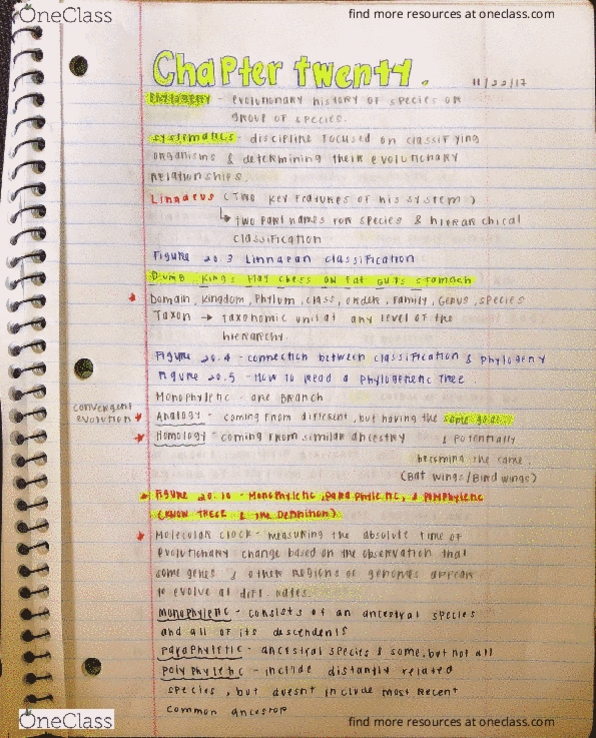 OneClass
find more resources at oneclass.com
Chapter twenty.
11/22/17
Phylogeny - evolutionary history of species or
group of species.
systematics - discipline focused on classifying
organisms & determining their evolutionary
relationships.
Linnaeus (Two key features of his system)
↳ two part names for species & hierarchical
classification
Figure 20.3 Linnaean classification
Dumb Kings Play chess on Fat Guys stomach
Domain, Kingdom, Phylum, class, order, Family, Genus, species
Taxon → Taxonomic unit at any level of the
hierarchy.
Figure 20.4 - connection between classification & phylogeny
Figure 20.5 - How to Read a Phylogenetic Tree
Monophyletic - one Branch
convergent
evolution
Analogy - coming from different, but having the same goal.
Homology - coming from similar ancestry & potentially
becoming the same.
(Bat wings/Bird wings)
Figure 20.10 - Monophyletic, paraphyletic, & polyphyletic
(KNOW THESE & the Definition)
Molecular clock - measuring the absolute time of
evolutionary change based on the observation that
some genes & other regions of genomes appear
to evolve at diff. rates.
monophyletic - consists of an ancestral species
and all of its descendents
paraphyletic - ancestral species & some, but not all
polyphyletic - include distantly related
species, but doesnt include most recent
common ancestor
OneClass
find more resources at oneclass.com